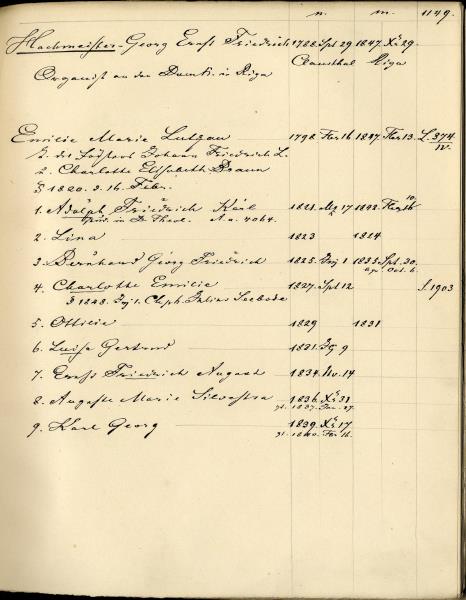 n. m. 1149.
Hachmeister, Georg Ernst Friedrich 1788. Spt 29 1847. Xb 29.
Clausthal Riga
Organist an der Domk. in Riga
Emilie Marie Lutzau 1798. Fbr 16 1847. Fbr 13. L. 374
IV.
T. des Johann Friedrich L.
2. Charlotte Elisabeth Braun
1820. d. 16. Febr.
1. Adolph Friedrich Karl 1821. 17 1842. Fbr 10/16
in D. Theol. A. a. 4064.
2. Lina 1823 1824
3. Bernhard Georg Friedrich 1825. 1 1833. Spt. 30.
Oct. 6.
4. Charlotte Emilie 1827. Spt 12 1903
1848. 1. Chph. Julius Seebode
5. Ottilie 1829 1831
6. Luise Gertrud 1831. 9
7. Ernst Friedrich August 1834. Nv. 14
8. Auguste Marie Silvestra 1836. Xb 31
1837. Jan. 27.
9. Karl Georg 1839. Xb 17
1840. Fbr 16.